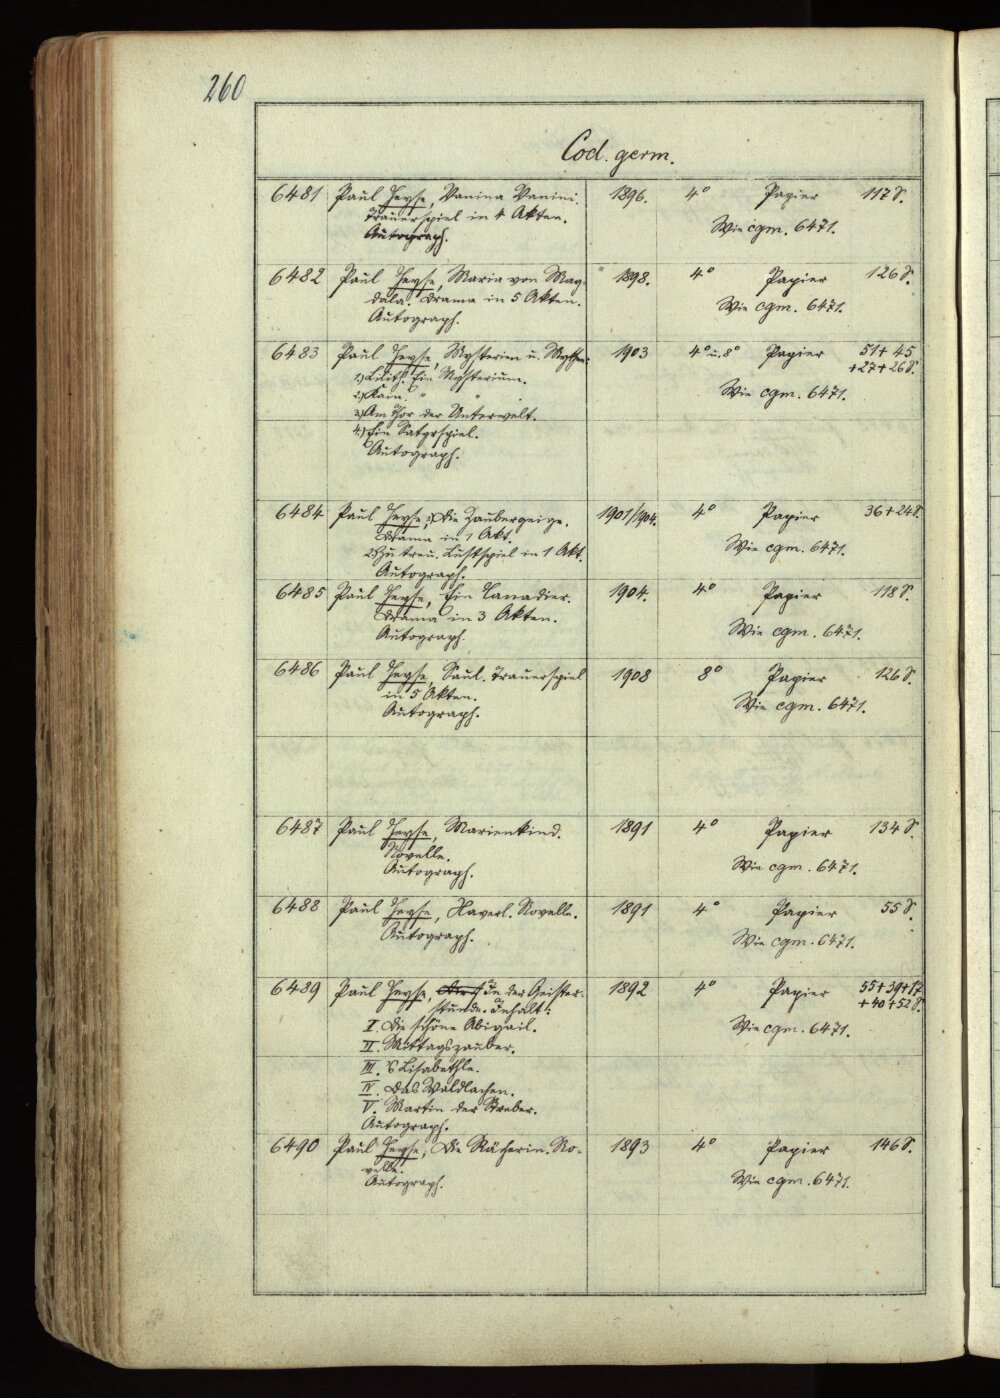 260
Cod. germ.
6481 Paul Heyse, Vanina Vanini. 1896. 4° Papier 117 S.
Trauerspiel in 4 Akten. Wie cgm. 6471.
Autograph.
6482 Paul Heyse, Maria von Mag- 1898. 4° Papier 126 S.
dala. Drama in 5 Akten. Wie cgm. 6471.
Autograph.
6483 Paul Heyse, Mysterien u. Mythen: 1903 4° u. 8° Papier 51 + 45
+ 27 + 26 S.
1) Lilith. Ein Mysterium.
2) Kain. " " Wie cgm. 6471.
3) Am Thor der Unterwelt.
4.) Ein Satyrspiel.
Autograph.
6484 Paul Heyse, 1) Die Zaubergeige. 1901/1904. 4° Papier 36 + 24 S.
Drama in 1 Akt.
2) Zu treu. Lustspiel in 1 Akt. Wie cgm. 6471.
Autograph.
6485 Paul Heyse, Ein Canadier. 1904. 4° Papier 118 S.
Drama in 3 Akten. Wie cgm. 6471.
Autograph.
6486 Paul Heyse, Saul. Trauerspiel 1908 8° Papier 126 S.
in 5 Akten. Wie cgm. 6471.
Autograph.
6487 Paul Heyse, Marienkind. 1891 4° Papier 134 S.
Novelle.
Autograph. Wie cgm. 6471.
6488 Paul Heyse, Xaverl. Novelle. 1891 4° Papier 55 S.
Autograph. Wie cgm. 6471.
6489 Paul Heyse, In der Geister- 1892 4° Papier 55 + 39 + 17
stunde. Inhalt: + 40 + 52 S.
I. Die schöne Abigail. Wie cgm. 6471.
II. Mittagszauber.
III. 's Lisabethle.
IV. Das Waldlachen.
V. Martin der Streber.
Autograph.
6490 Paul Heyse, Die Rächerin. No- 1893 4° Papier 146 S.
velle.
Autograph. Wie cgm. 6471.